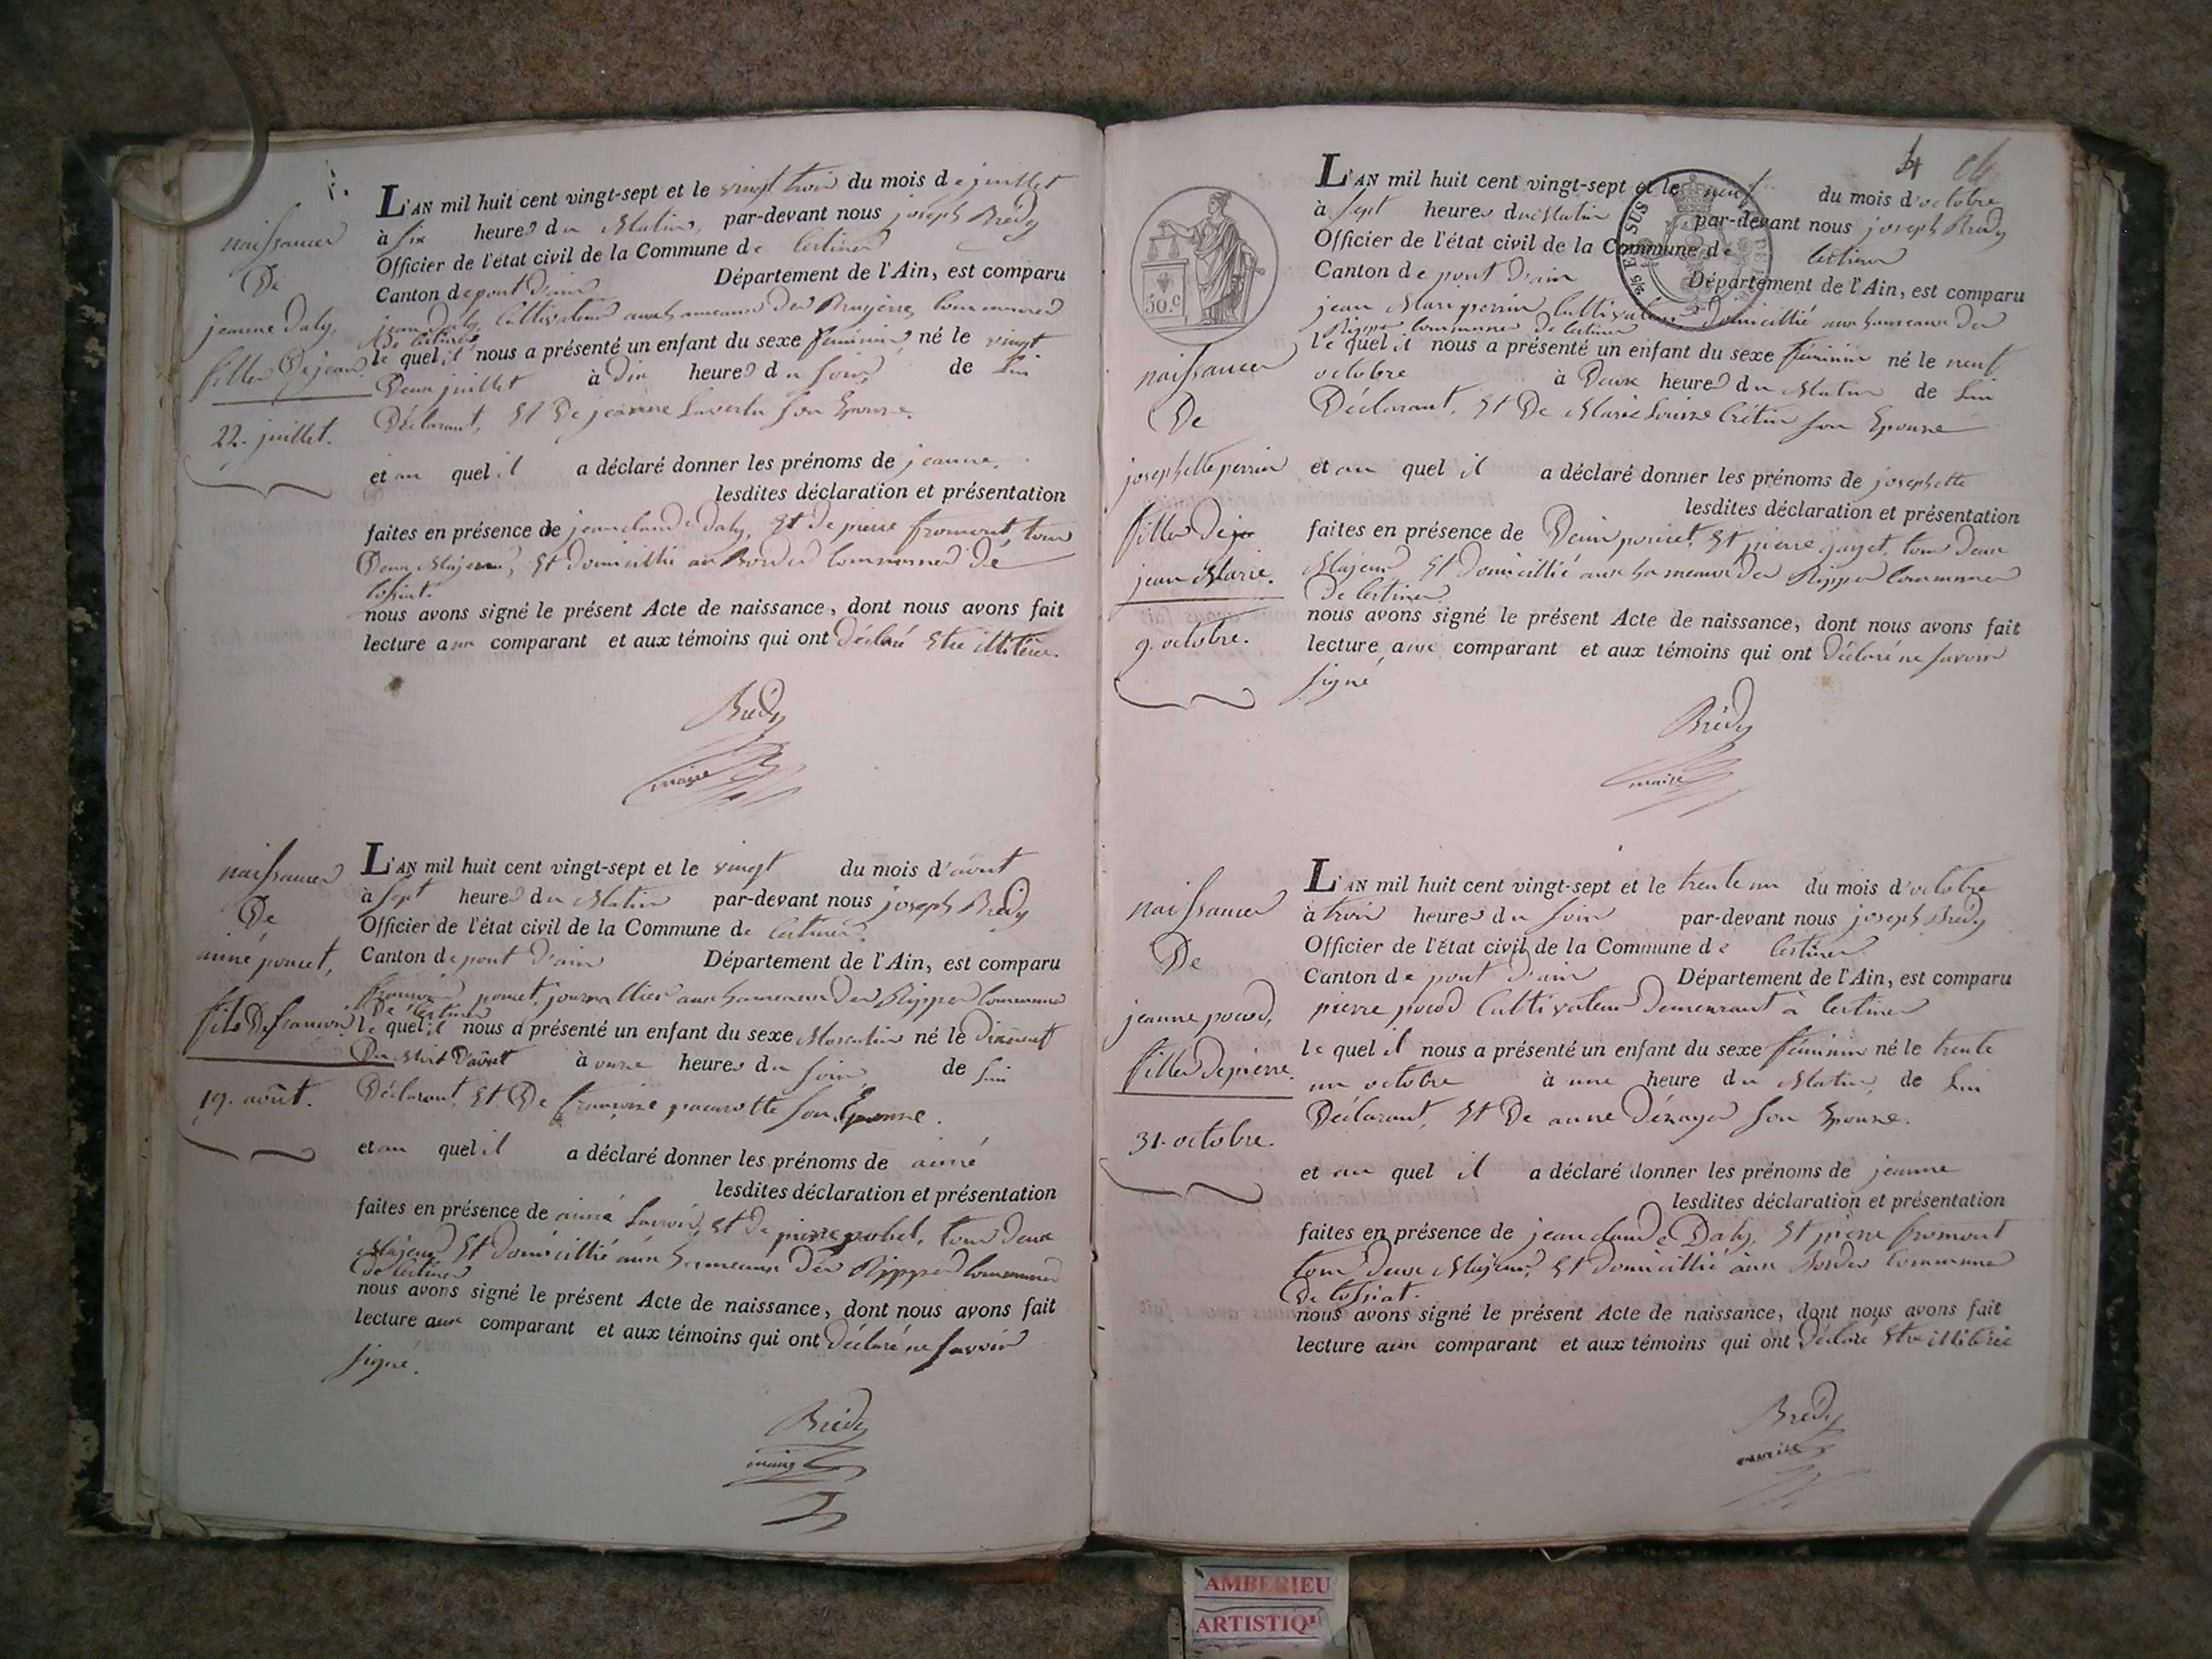 naissance
De
jeanne Daly,
fille De jean
22. juillet.
L'AN mil huit cent vingt-sept et le vingt trois du mois de juillet
à six heures du Matin, par-devant nous joseph Brédy
Officier de l'état civil de la Commune de Certines
Canton de pont D'ain Département de l'Ain, est comparu
jean Daly, Cultivateur aux hameaux des Bruyères, Commune
de Certines
le quel il nous a présenté un enfant du sexe féminin né le vingt
Deux juillet à dix heures du soir, de Lui
Déclarant, Et De jeanne son Epouse.
et au quel il a déclaré donner les prénoms de jeanne,
lesdites déclaration et présentation
faites en présence de jean claude Daly, Et De pierre fromont, tous
Deux Majeurs, Et domicillié au Bordes Commune de
tossiat.
nous avons signé le présent Acte de naissance, dont nous avons fait
lecture aux comparant et aux témoins qui ont Déclaré Etre illitéré.
Brédy
maire
naissance
De
aimé poncet,
fils De francois
19. août.
L'AN mil huit cent vingt-sept et le vingt du mois d'août
à sept heures du Matin par-devant nous joseph Brédy
Officier de l'état civil de la Commune de Certines,
Canton de pont D'ain Département de l'Ain, est comparu
francois poncet, journallier aux hameaux des Rippes Commune
De Certines
le quel il nous a présenté un enfant du sexe Masculin né le Dixneuf
Du Mois D'août à onze heures du soir, de Lui
Déclarant, Et De françoise son Epouse.
et au quel il a déclaré donner les prénoms de aimé
lesdites déclaration et présentation
faites en présence de aimé Et De pierre tous deux
Majeurs Et domicillié aux hameaux Des Rippes Commune
de Certines
nous avons signé le présent Acte de naissance, dont nous avons fait
lecture aux comparant et aux témoins qui ont Déclaré ne savoir
signé.
Brédy
maire
50.c
naissance
De
josephette perrin
fille De
jean Marie.
9. octobre.
L'AN mil huit cent vingt-sept et le neuf du mois d'octobre
à sept heures du Matin par-devant nous joseph Brédy
Officier de l'état civil de la Commune de Certines
Canton de pont D'ain Département de l'Ain, est comparu
jean Marie perrin Cultivateur Domicillié aux hameaux des
Rippes Commune De Certines
le quel il nous a présenté un enfant du sexe féminin né le neuf
octobre à Deux heures du Matin de Lui
Déclarant, Et De Marie Louise Crétin son Epouse
et au quel il a déclaré donner les prénoms de josephette
lesdites déclaration et présentation
faites en présence de Denis poncet, Et pierre jayet, tous deux
Majeurs Et Domicillié aux hameaux des Rippes Commune
De Certines
nous avons signé le présent Acte de naissance, dont nous avons fait
lecture aux comparant et aux témoins qui ont Déclaré ne savoir
signé
Brédy
maire
naissance
De
jeanne pocod,
fille De pierre.
31. octobre.
L'AN mil huit cent vingt-sept et le trente un du mois d'octobre
à trois heures du soir par-devant nous joseph Brédy
Officier de l'état civil de la Commune de Certines
Canton de pont d'ain Département de l'Ain, est comparu
pierre pocod Cultivateur Demeurant à Certines
le quel il nous a présenté un enfant du sexe féminin né le trente
un octobre à une heure du Matin, de Lui
Déclarant, Et De anne son Epouse.
et au quel il a déclaré donner les prénoms de jeanne
lesdites déclaration et présentation
faites en présence de jean claude Daly, Et pierre fromont
tous deux Majeurs, Et domicillié aux Bordes Commune
De tossiat.
nous avons signé le présent Acte de naissance, dont nous avons fait
lecture aux comparant et aux témoins qui ont Déclaré Etre illitéré
Brédy
maire
AMBERIEU
ARTISTIQU